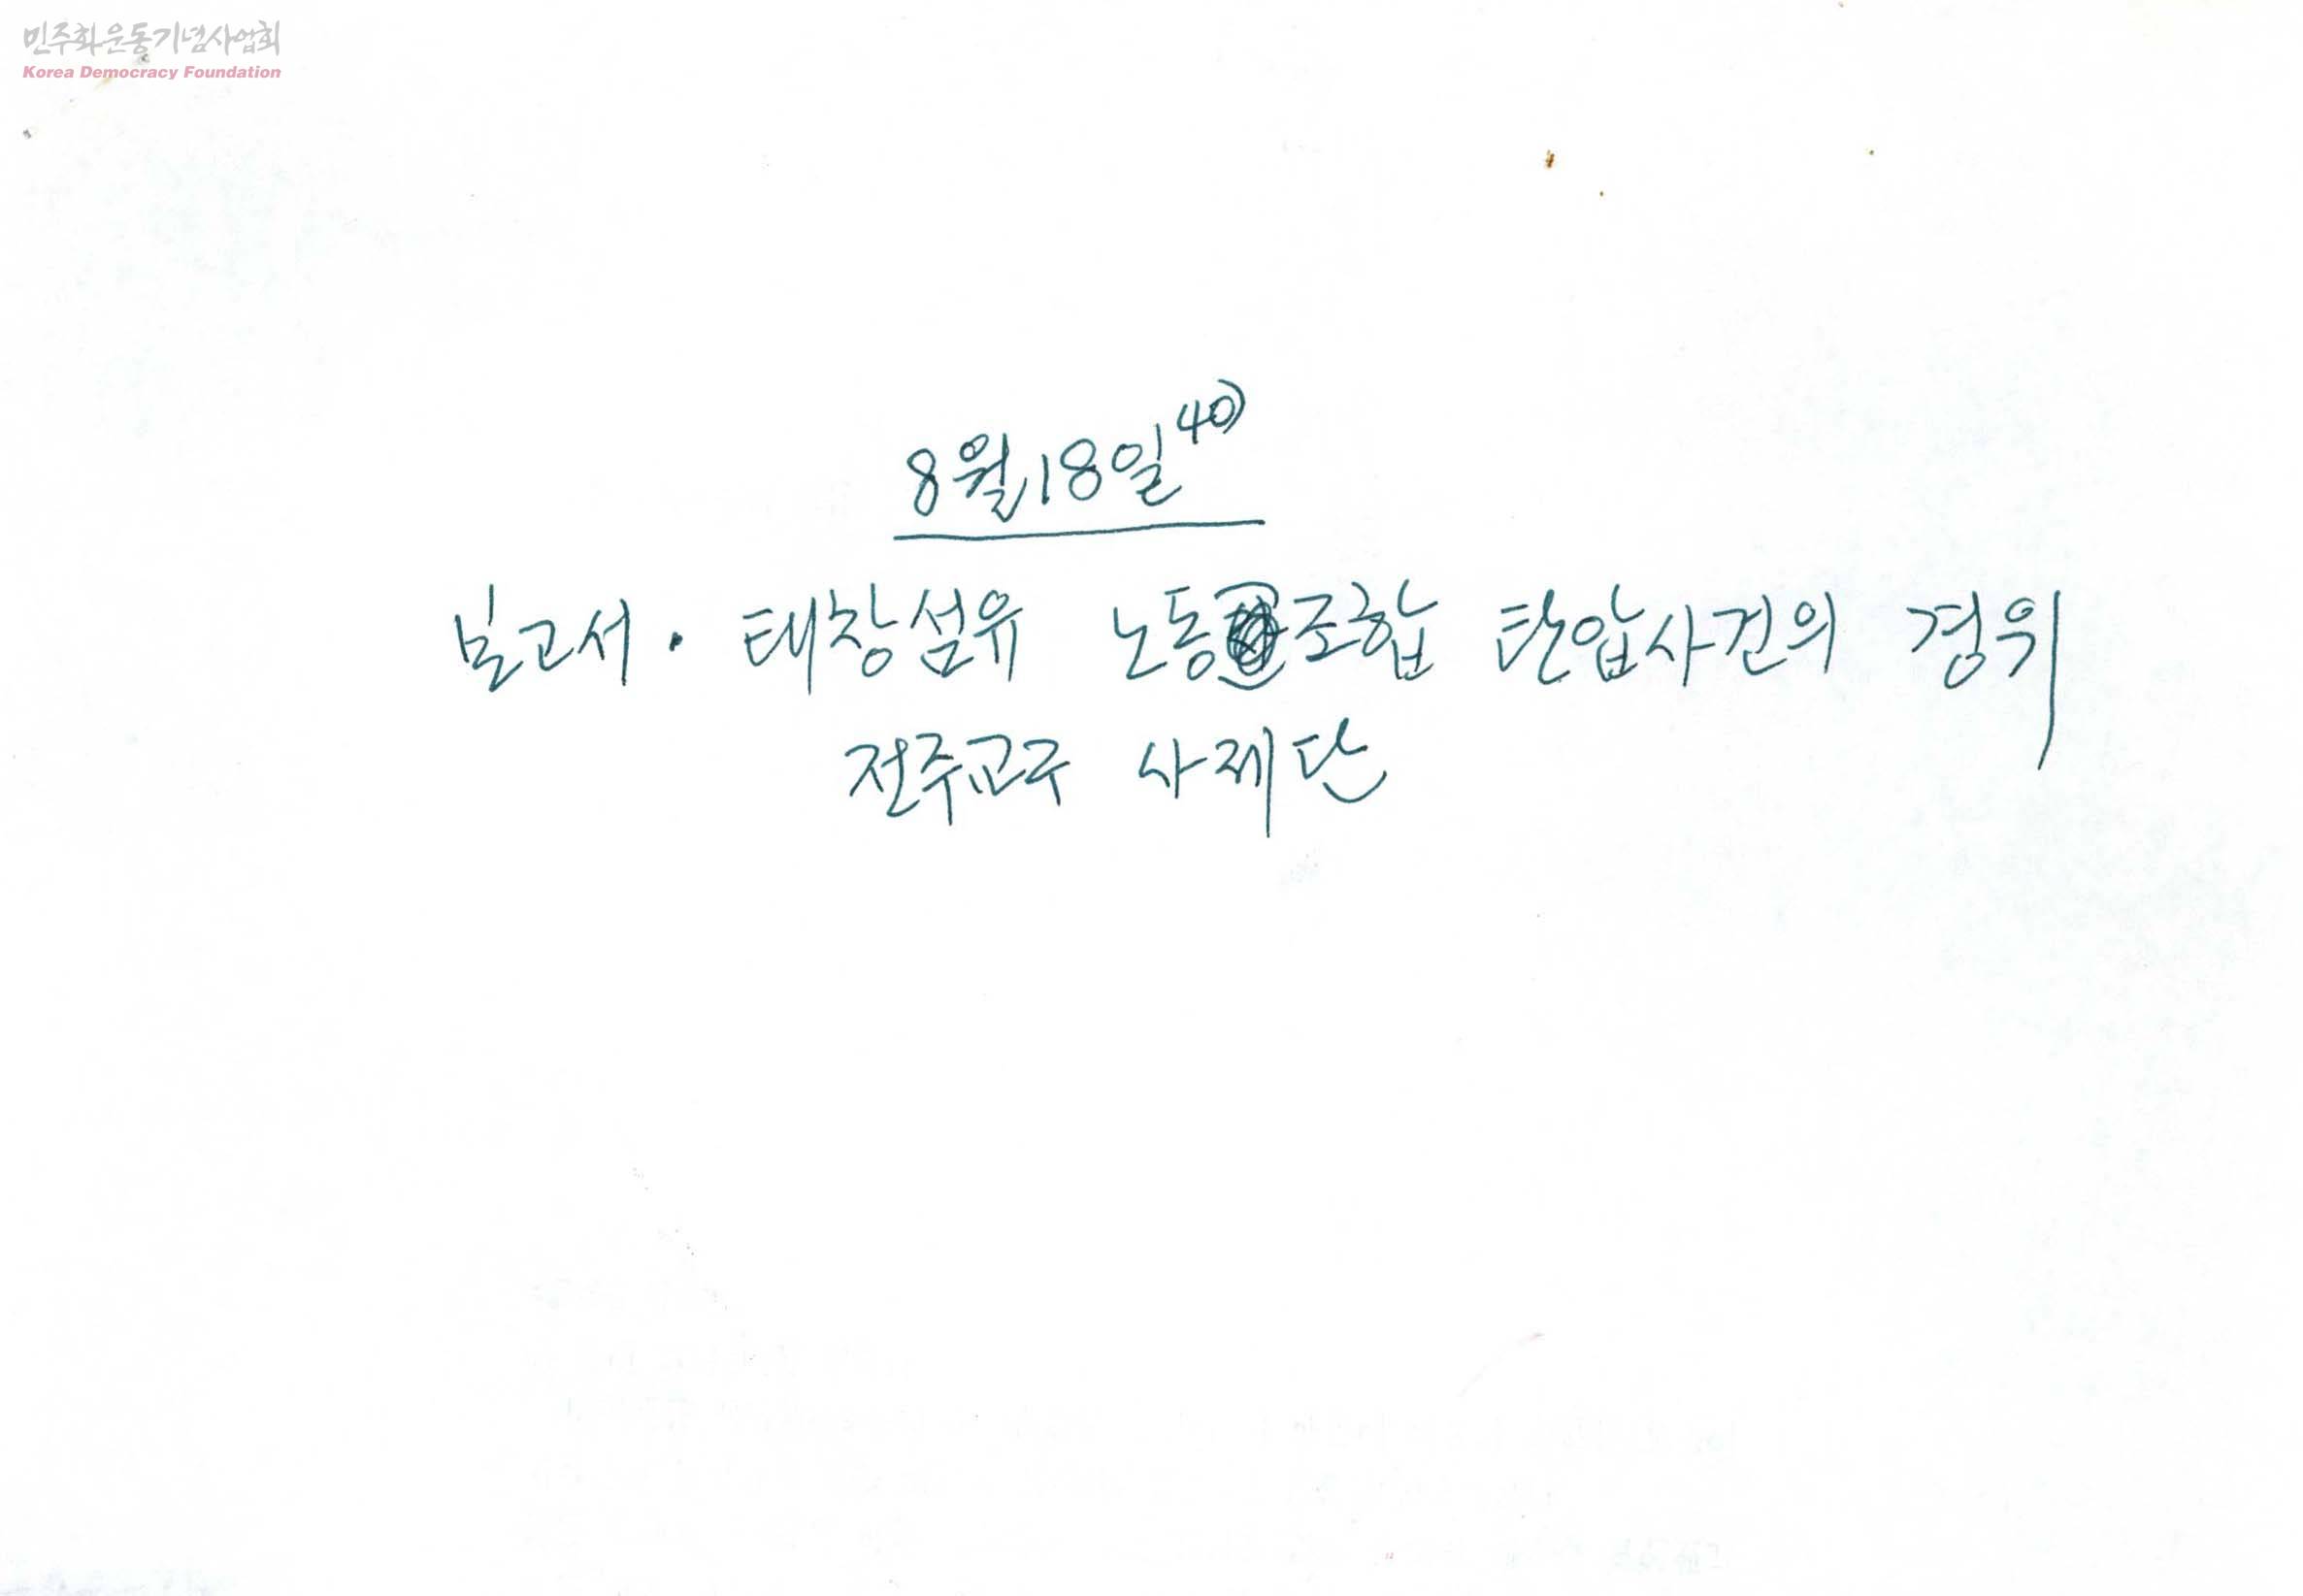 민주화운동기념사업회
Korea Democracy Foundation
8월18일 40)
보고서. 태창섬유 노동조합 탄압사건의 경위
전주교구 사제단